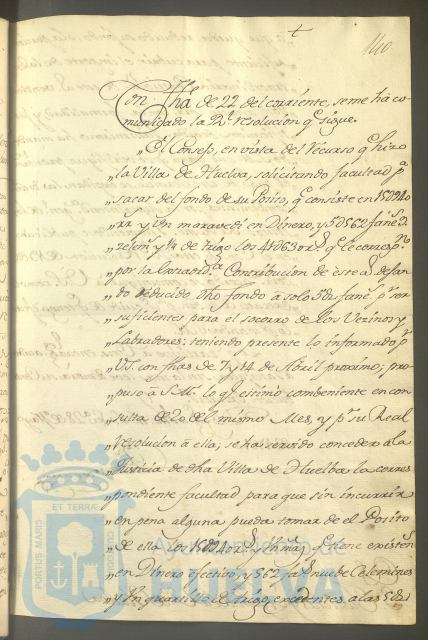 140
Con fha de 22 del corriente, se me ha co-
municado la Rl. resolucion qe sigue.
„ El Consejo, en vista del Recurso qe hizo
„ la Villa de Huelva, solicitando facultad pa
„ sacar del fondo de su Posito, qe consiste en 15094
„ rr y maravedi en Dinero, y 5562 fans 9
„ zelems y 1/4 de trigo los 41063 rs qe le corresp
„ por la Contribucion de este a defan-
„ do reducido dho fondo a solo fans pr ser
„ suficientes para el socorro de los Vezinos y
„ Labradores: teniendo presente lo informado pr
„ VS. con fhas de 7 y 14 de Abril proximo; pro-
„ puso a S.M. lo qe estimó combeniente en con-
„ sulta de 20 del mismo Mes, y pr su Real
„ resolucion à ella, se ha servido conceder a la
„ Justicia de dha Villa de Huelba la corres-
„ pondiente facultad para que sin incurrir
„ en pena alguna pueda tomar de el Posito
„ de ella los 15094 rs qe tiene existen
„ en Dinero efectivo, y 562 fans nuebe Celemines
„ y un quartillo de trigo, excedentes a las
PORTUS MARIS ET TERRAE CUSTODIA
Ayuntamiento de
HUELVA